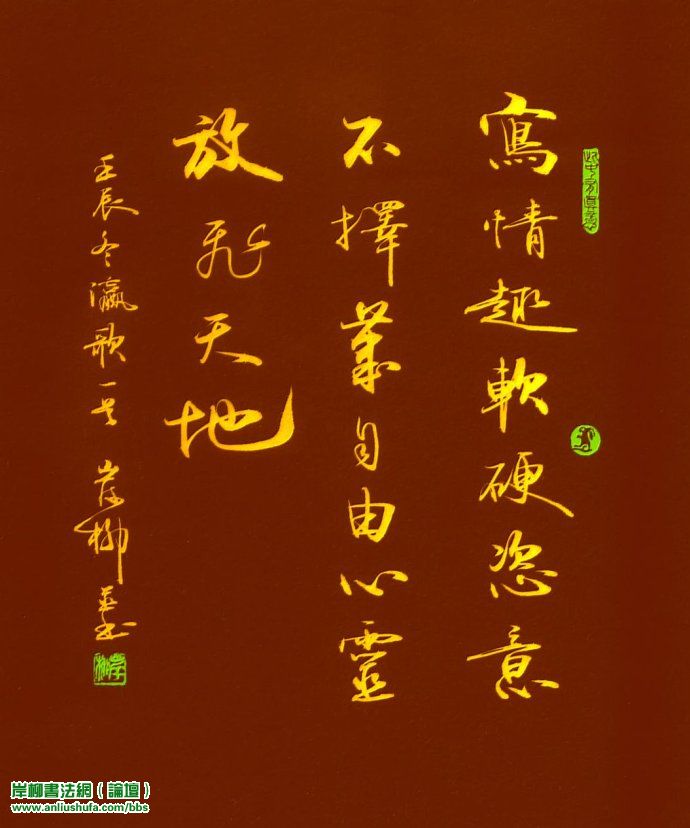 寫情趣軟硬恣意
不擇自由心靈
放飛天地
壬辰冬瀛歌一首 岸柳並書
岸柳書法網（論壇）
www.anliushufa.com/bbs